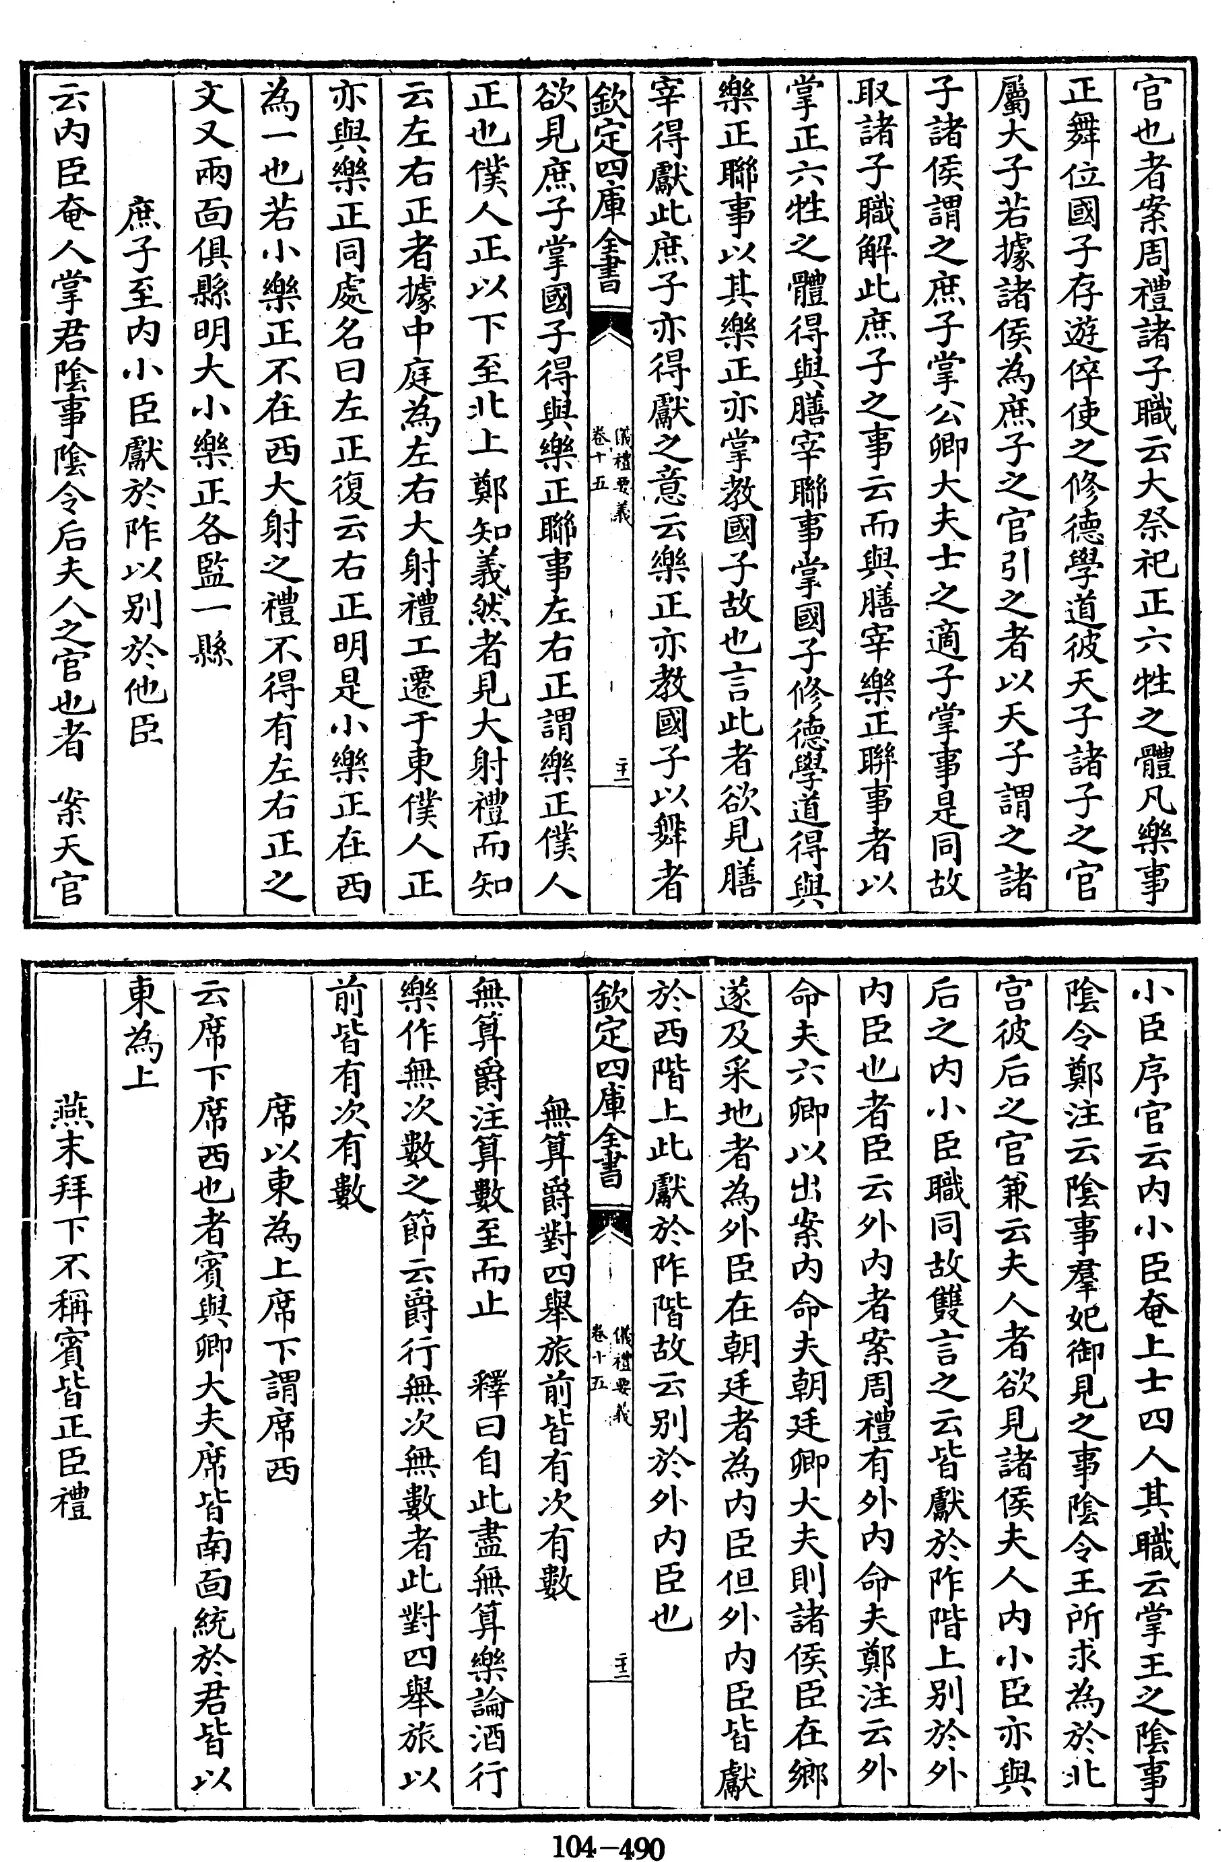 官也者案周禮諸子職云大祭祀正六牲之體凡樂事
正舞位國子存遊倅使之修德學道彼天子諸子之官
屬大子若據諸侯為庶子之官引之者以天子謂之諸
子諸侯謂之庶子掌公卿大夫士之適子掌事是同故
取諸子職解此庶子之事云而與膳宰樂正聯事者以
掌正六牲之體得與膳宰聯事掌國子修德學道得與
樂正聯事以其樂正亦掌教國子故也言此者欲見膳
宰得獻此庶子亦得獻之意云樂正亦教國子以舞者
欽定四庫全書
儀禮要義
卷十五
二十一
欲見庶子掌國子得與樂正聯事左右正謂樂正僕人
正也僕人正以下至北上鄭知義然者見大射禮而知
云左右正者據中庭為左右大射禮工遷于東僕人正
亦與樂正同處名曰左正復云右正明是小樂正在西
為一也若小樂正不在西大射之禮不得有左右正之
文又兩面俱縣明大小樂正各監一縣
庶子至内小臣獻於阼以别於他臣
云内臣奄人掌君陰事陰令后夫人之官也者 案天官
小臣序官云内小臣奄上士四人其職云掌王之陰事
陰令鄭注云陰事羣妃御見之事陰令王所求為於北
宫彼后之官兼云夫人者欲見諸侯夫人内小臣亦與
后之内小臣職同故雙言之云皆獻於阼階上别於外
内臣也者臣云外内者案周禮有外内命夫鄭注云外
命夫六卿以出案内命夫朝廷卿大夫則諸侯臣在鄉
遂及采地者為外臣在朝廷者為内臣但外内臣皆獻
於西階上此獻於阼階故云别於外内臣也
欽定四庫全書
儀禮要義
卷十五
二十二
無算爵對四舉旅前皆有次有數
無算爵注算數至而止 釋曰自此盡無算樂論酒行
樂作無次數之節云爵行無次無數者此對四舉旅以
前皆有次有數
席以東為上席下謂席西
云席下席西也者賓與卿大夫席皆南面統於君皆以
東為上
燕末拜下不稱賓皆正臣禮
104-490